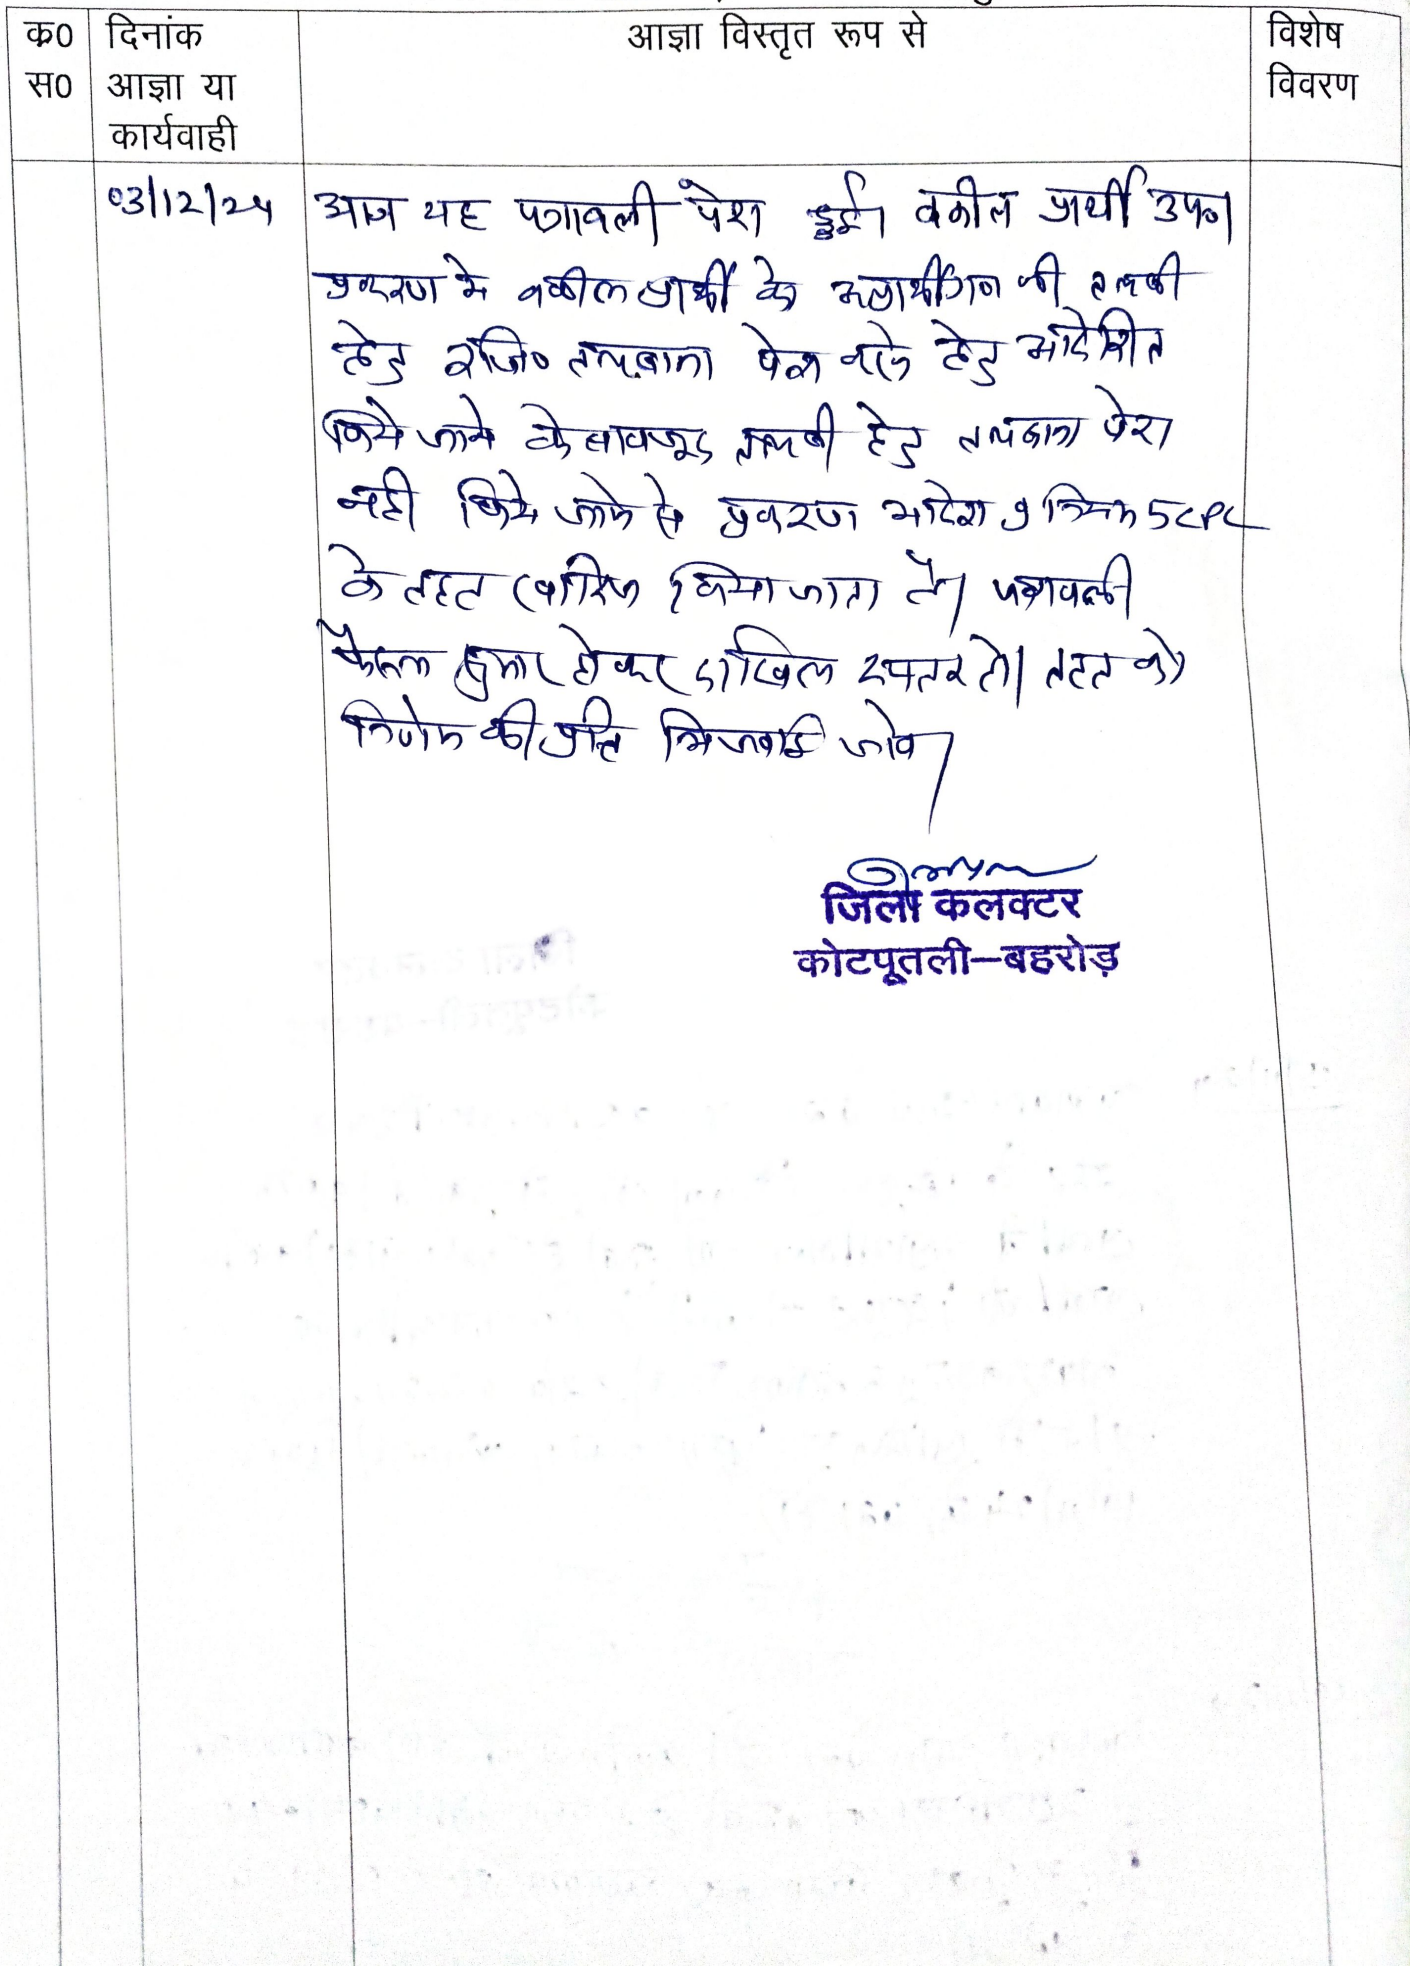 क0 दिनांक आज्ञा विस्तृत रूप से विशेष
स0 आज्ञा या विवरण
कार्यवाही
03/12/24 आज यह पत्रावली पेश हुई। वकील प्रार्थी उप0।
प्रकरण मे वकील प्रार्थी के अप्रार्थीगण की तलबी
हेतु रजि0 तलबाना पेश करने हेतु आदेशित
किये जाने के बावजूद तलबी हेतु तलबाना पेश
नही किये जाने से प्रकरण आदेश 9 नियम 5 CPC
के तहत खारिज किया जाता है। पत्रावली
फैसल शुमार होकर दाखिल दफ्तर हो। तहत को
निर्णय की प्रति भिजवाई जावे।
जिला कलक्टर
कोटपूतली–बहरोड़